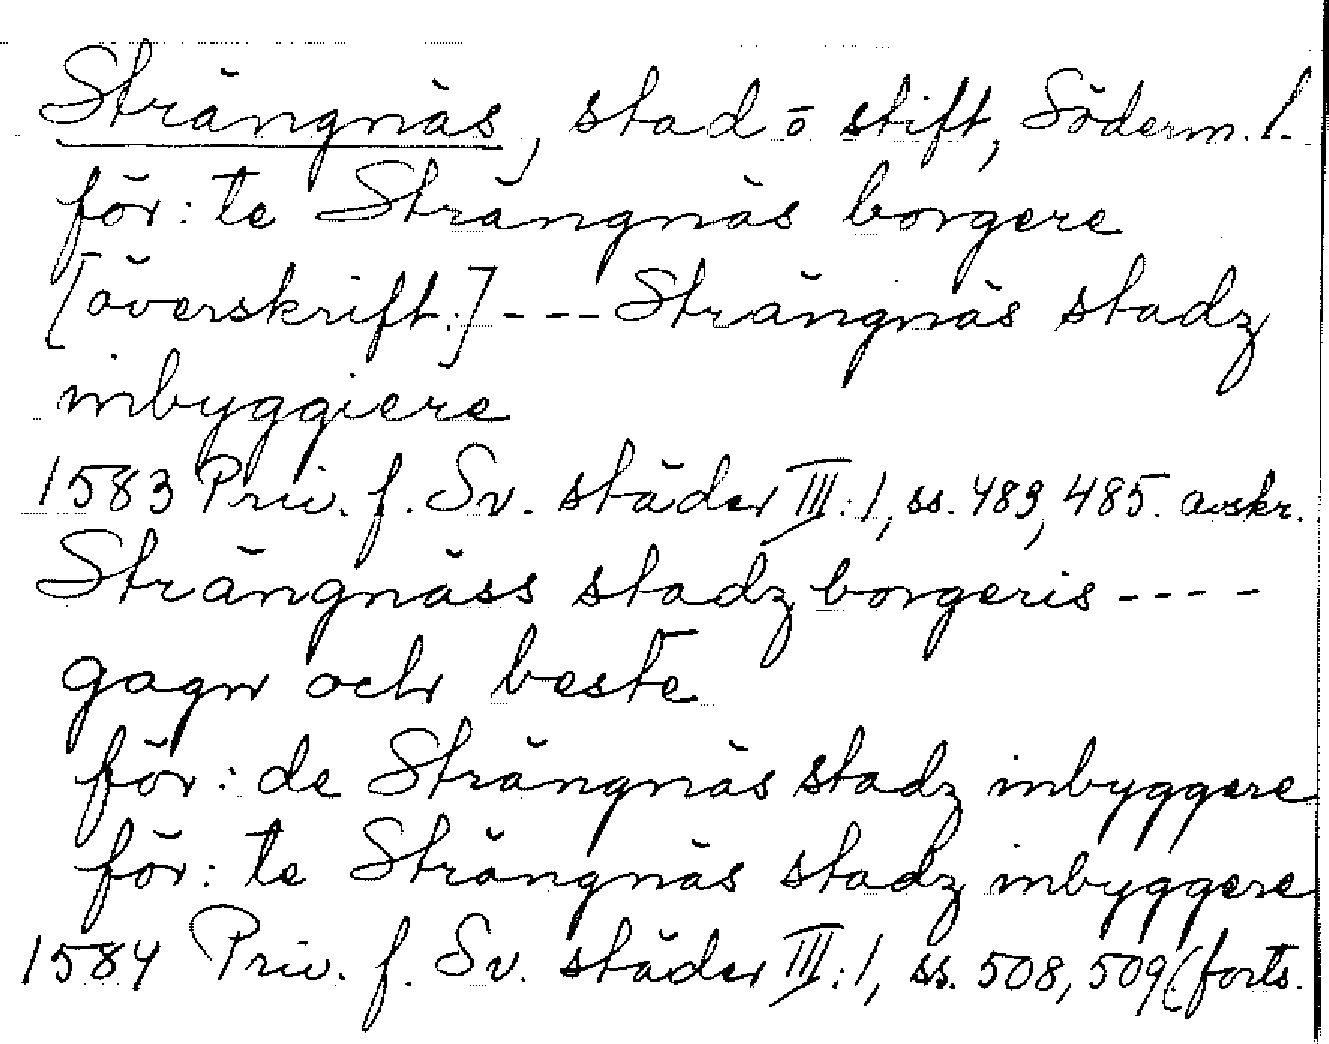 Strängnäs, stad o stift, Söderm. l.
för: te Strängnäs borgere
[överskrift:] --- Strängnäs stadz
inbyggiere
1583 Priv. f. Sv. städer III:1, ss. 483, 485. avskr.
Strängnäss stadz borgeris ----
gagn och beste
för: de Strängnäs stadz inbyggere
för: te Strängnäs stadz inbyggere
1584 Priv. f. Sv. städer III:1, ss. 508, 509 (forts.